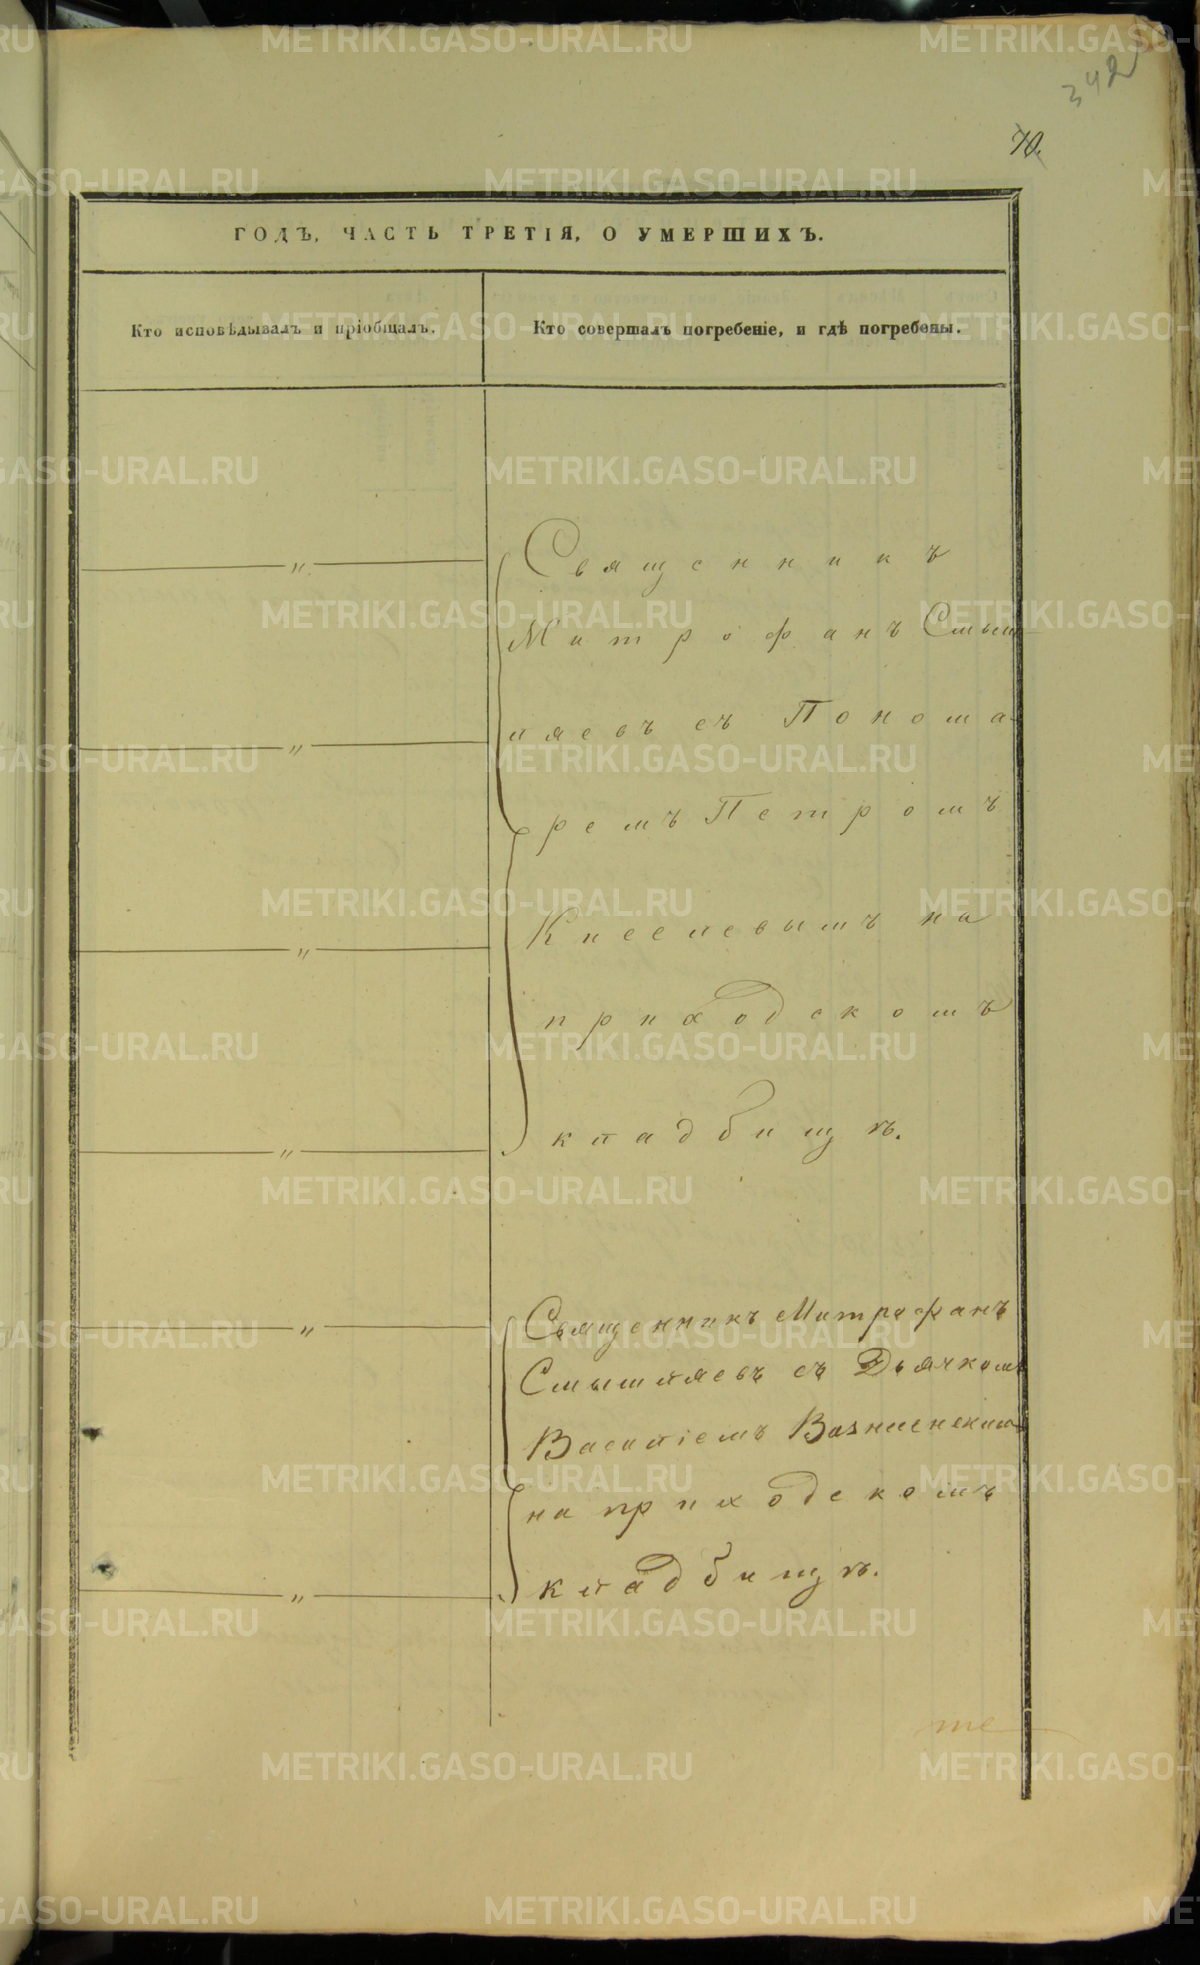 342
70.
ГОДЪ, ЧАСТЬ ТРЕТІЯ, О УМЕРШИХЪ.
Кто исповѣдывалъ и пріобщалъ.
Кто совершалъ погребеніе, и гдѣ погребены.
Священникъ
Митрофанъ Смыш-
ляевъ съ Понома-
ремъ Петромъ
на
приходскомъ
кладбищѣ.
Священникъ Митрофанъ
Смышляевъ съ Дьячкомъ
Василіемъ Вознесенскимъ
на приходскомъ
кладбищѣ.
METRIKI.GASO-URAL.RU